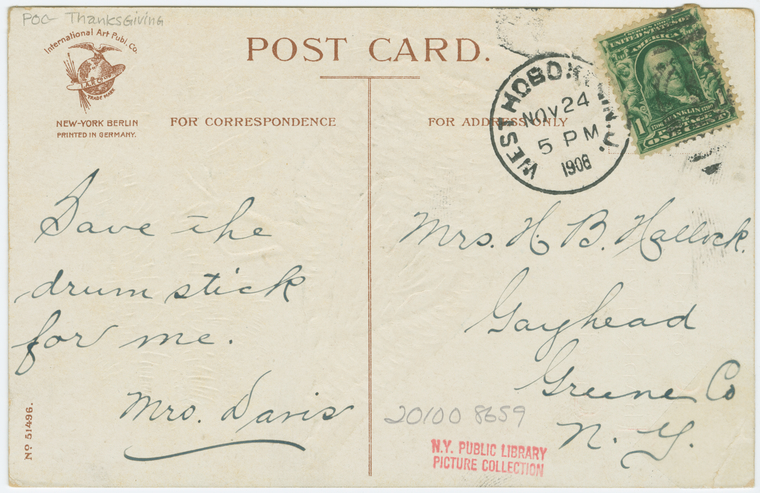 POC- Thanksgiving
International Art Publ. Co.
TRADE MARK
NEW-YORK BERLIN
PRINTED IN GERMANY.
POST CARD.
FOR CORRESPONDENCE
FOR ADDRESS ONLY
WEST HOBOKEN, N.J.
NOV 24
5 PM
1908
UNITED STATES OF
AMERICA
1 1
FRANKLIN
ONE CENT
Save the
drum stick
for me.
Mrs. Davis
Mrs. H. B. Hallock.
Gayhead
Greene Co
N. Y.
20100 8659
N.Y. PUBLIC LIBRARY
PICTURE COLLECTION
No 51496.